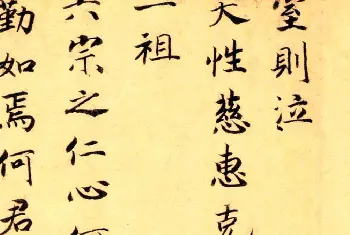 室則泣
天性慈惠克
一祖
六宗之仁心
勤如焉何君